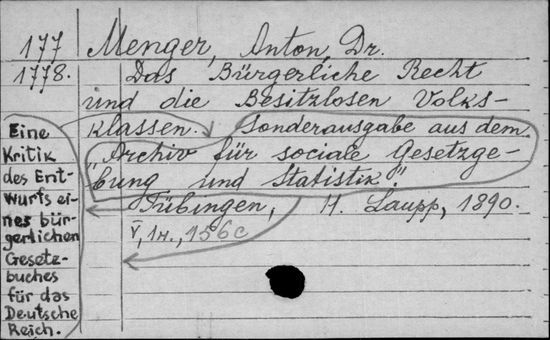 177
1778.
Menger, Anton, Dr.
Das Bürgerliche Recht
und die Besitzlosen Volks-
klassen. Sonderausgabe aus dem
"Archiv für sociale Gesetzge-
bung und Statistik."
Tübingen, H. Laupp, 1890.
V, 1H., 156c
Eine
Kritik
des Ent-
wurfs ei-
nes bür-
gerlichen
Gesetz-
buches
für das
Deutsche
Reich.